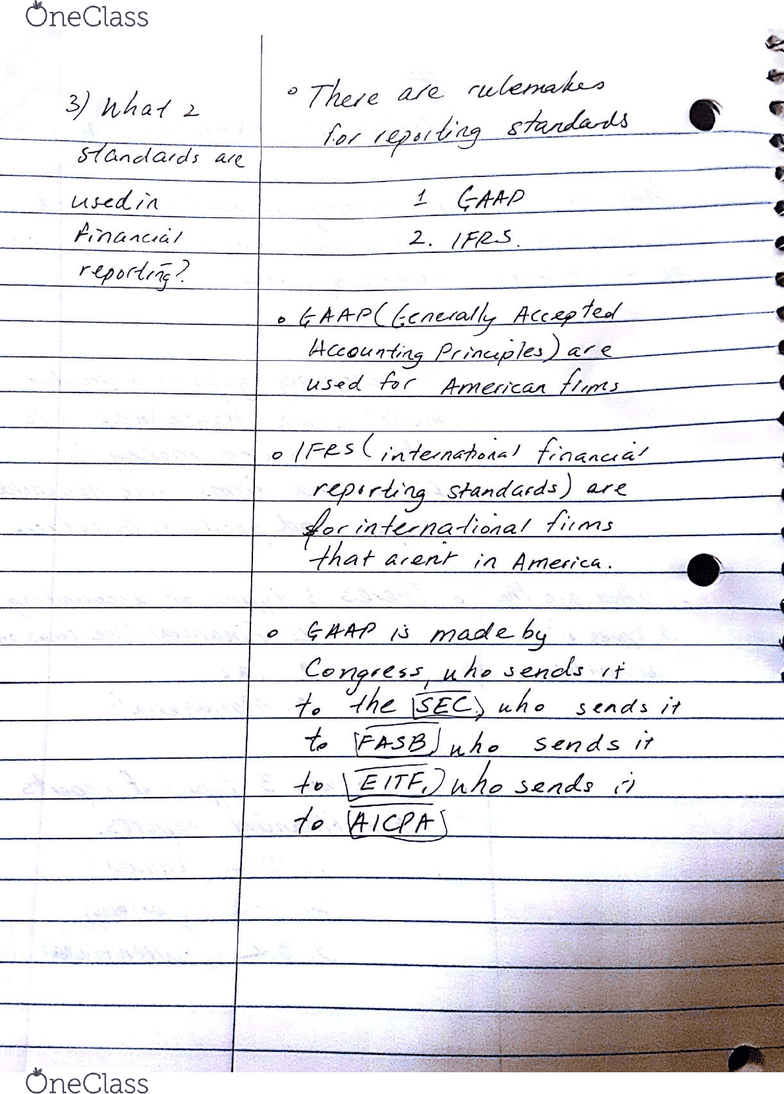 OneClass
3) What 2
standards are
used in
financial
reporting?
° There are rulemakes
for reporting standards
1 GAAP
2. IFRS.
° GAAP (Generally Accepted
Accounting Principles) are
used for American firms
° IFRS (international financial
reporting standards) are
for international firms
that arent in America.
° GAAP is made by
Congress, who sends it
to the SEC, who sends it
to FASB, who sends it
to EITF, who sends it
to AICPA
OneClass